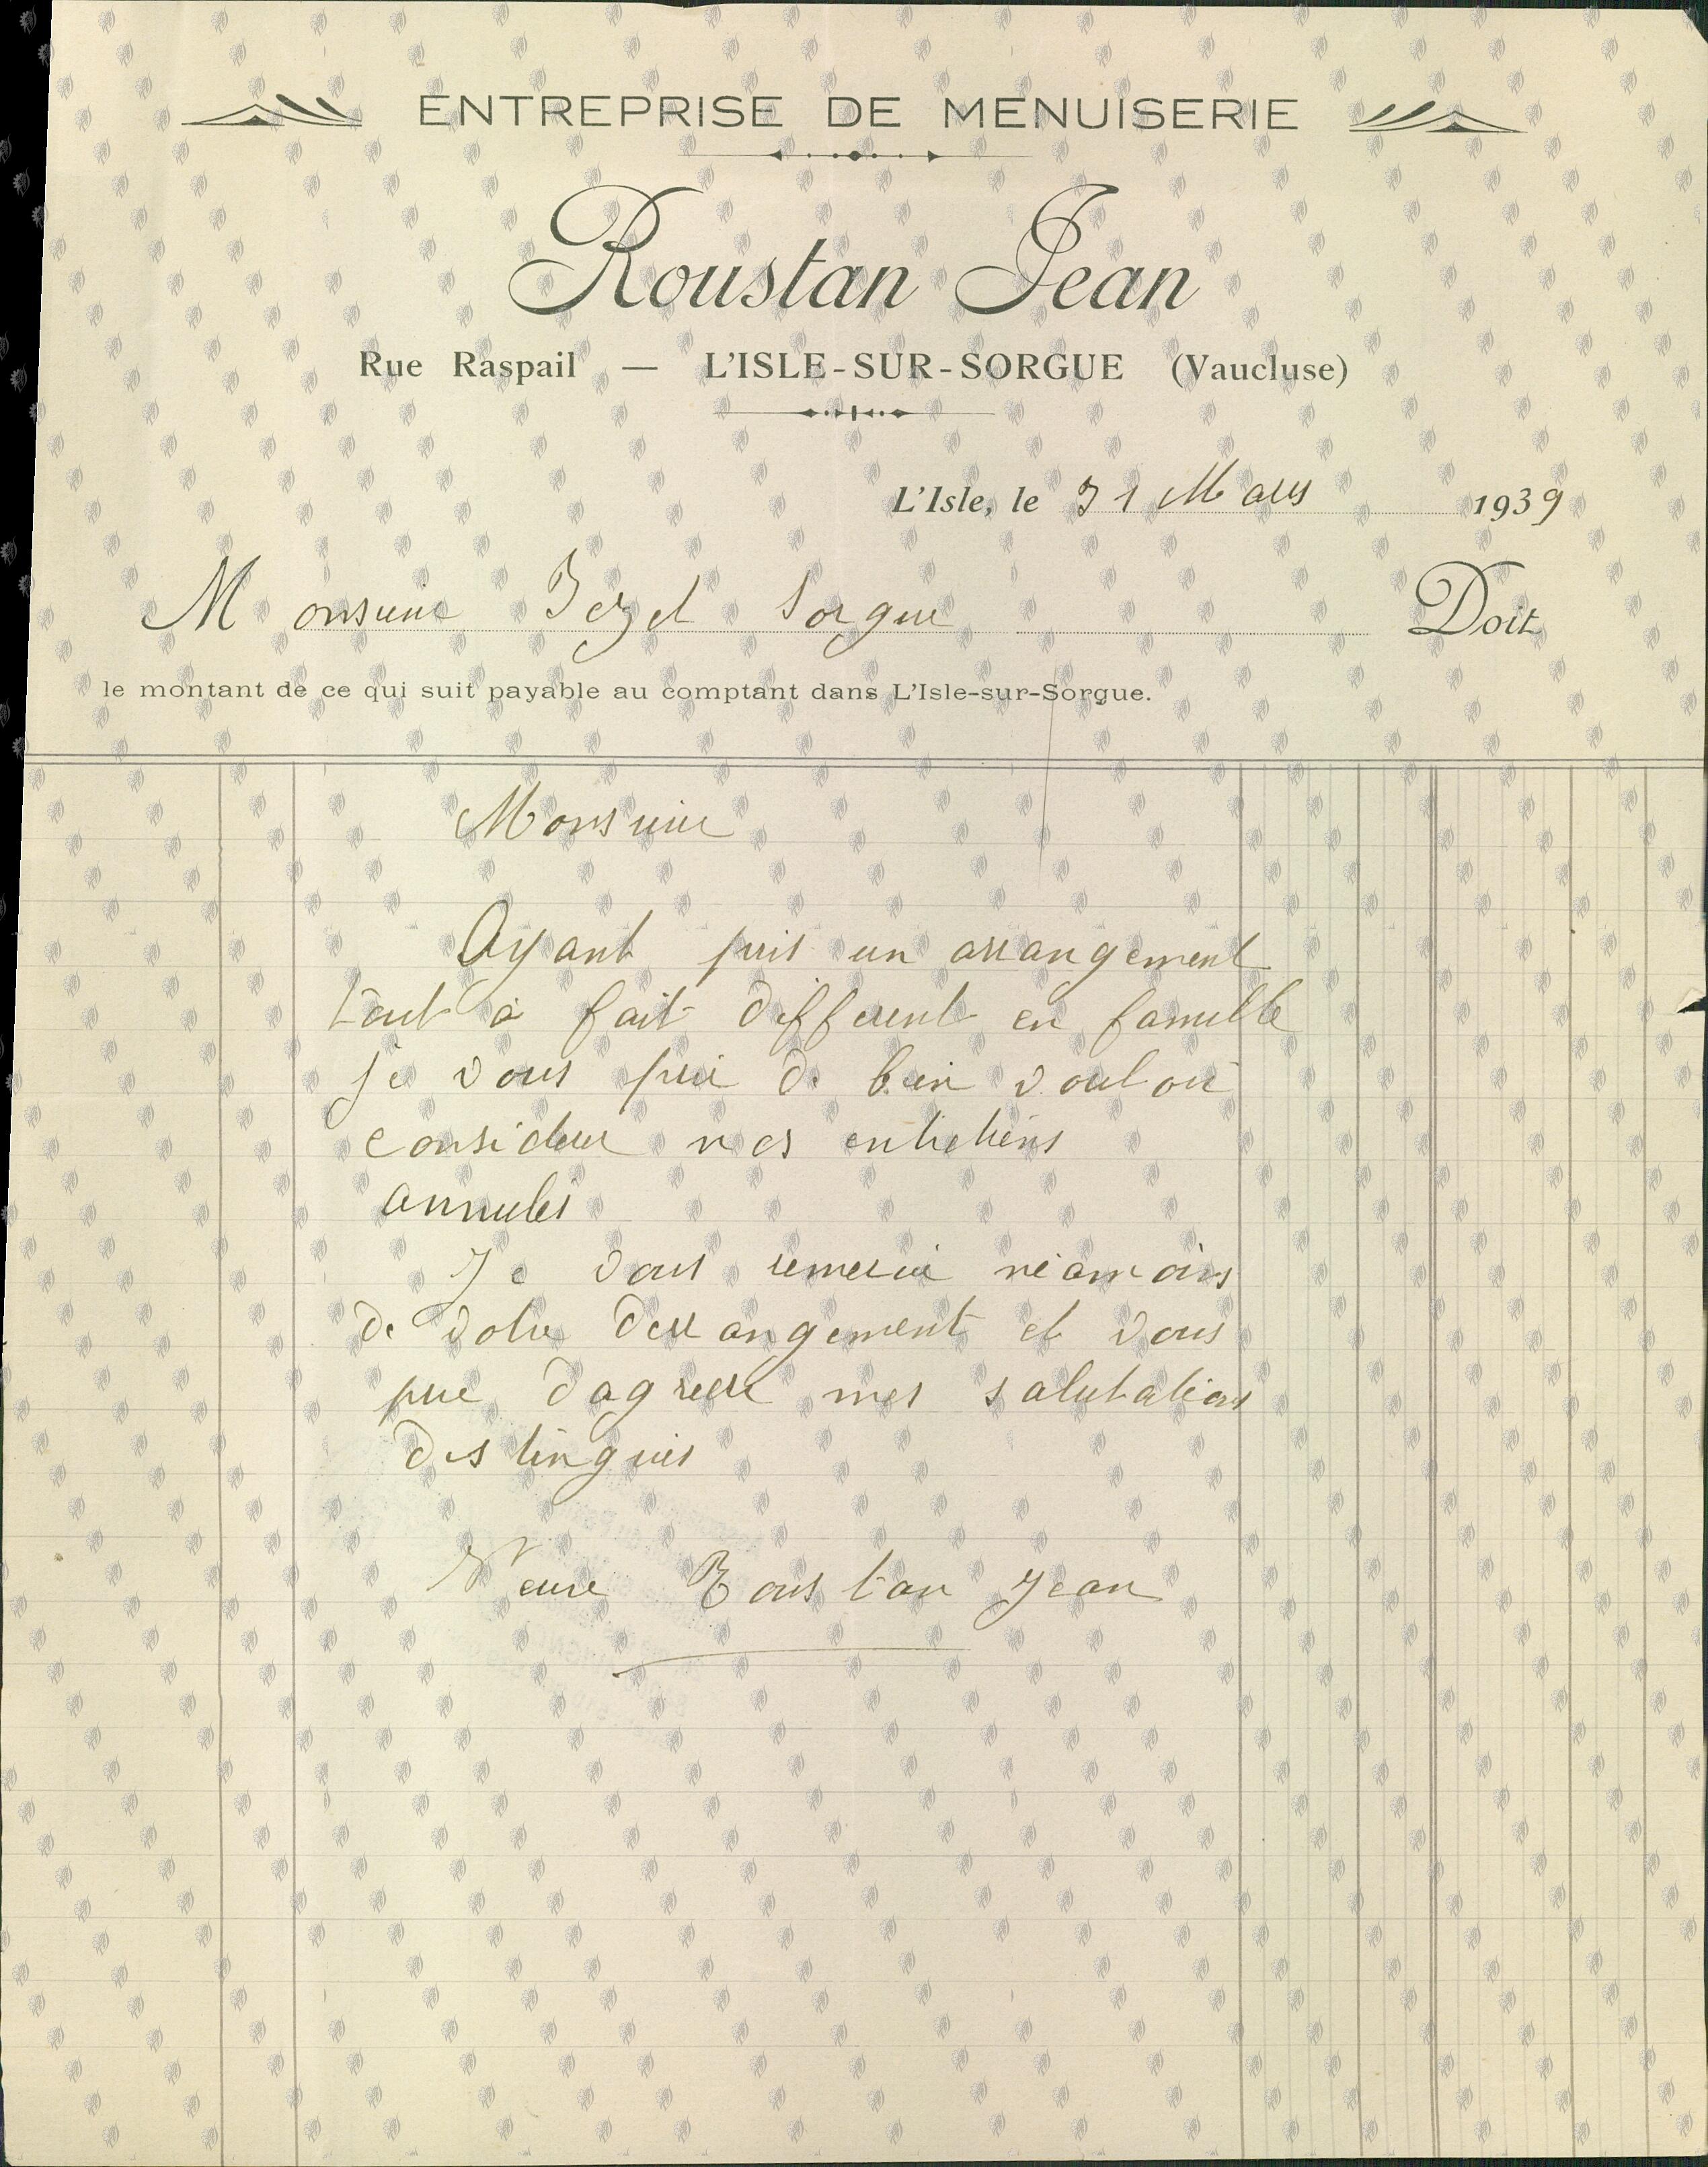 ENTREPRISE DE MENUISERIE
Roustan Jean
Rue Raspail — L'ISLE-SUR-SORGUE (Vaucluse)
L'Isle, le 31 Mars 1939
Monsieur Sorgue Doit
le montant de ce qui suit payable au comptant dans L'Isle-sur-Sorgue.
Monsieur
Ayant pris un arrangement
tout à fait different en famille
je vous prie de bien vouloir
considerer nos entretiens
annulés
Je vous remercie néamoins
de votre derrangement et vous
prie dagreer mes salutations
distingués
Veuve Roustan Jean